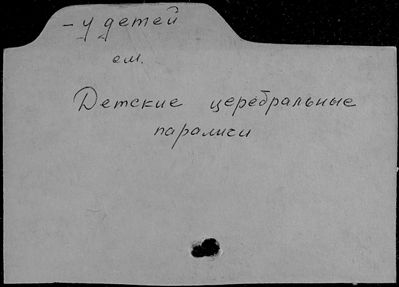 - у детей
см.
Детские церебральные
параличи